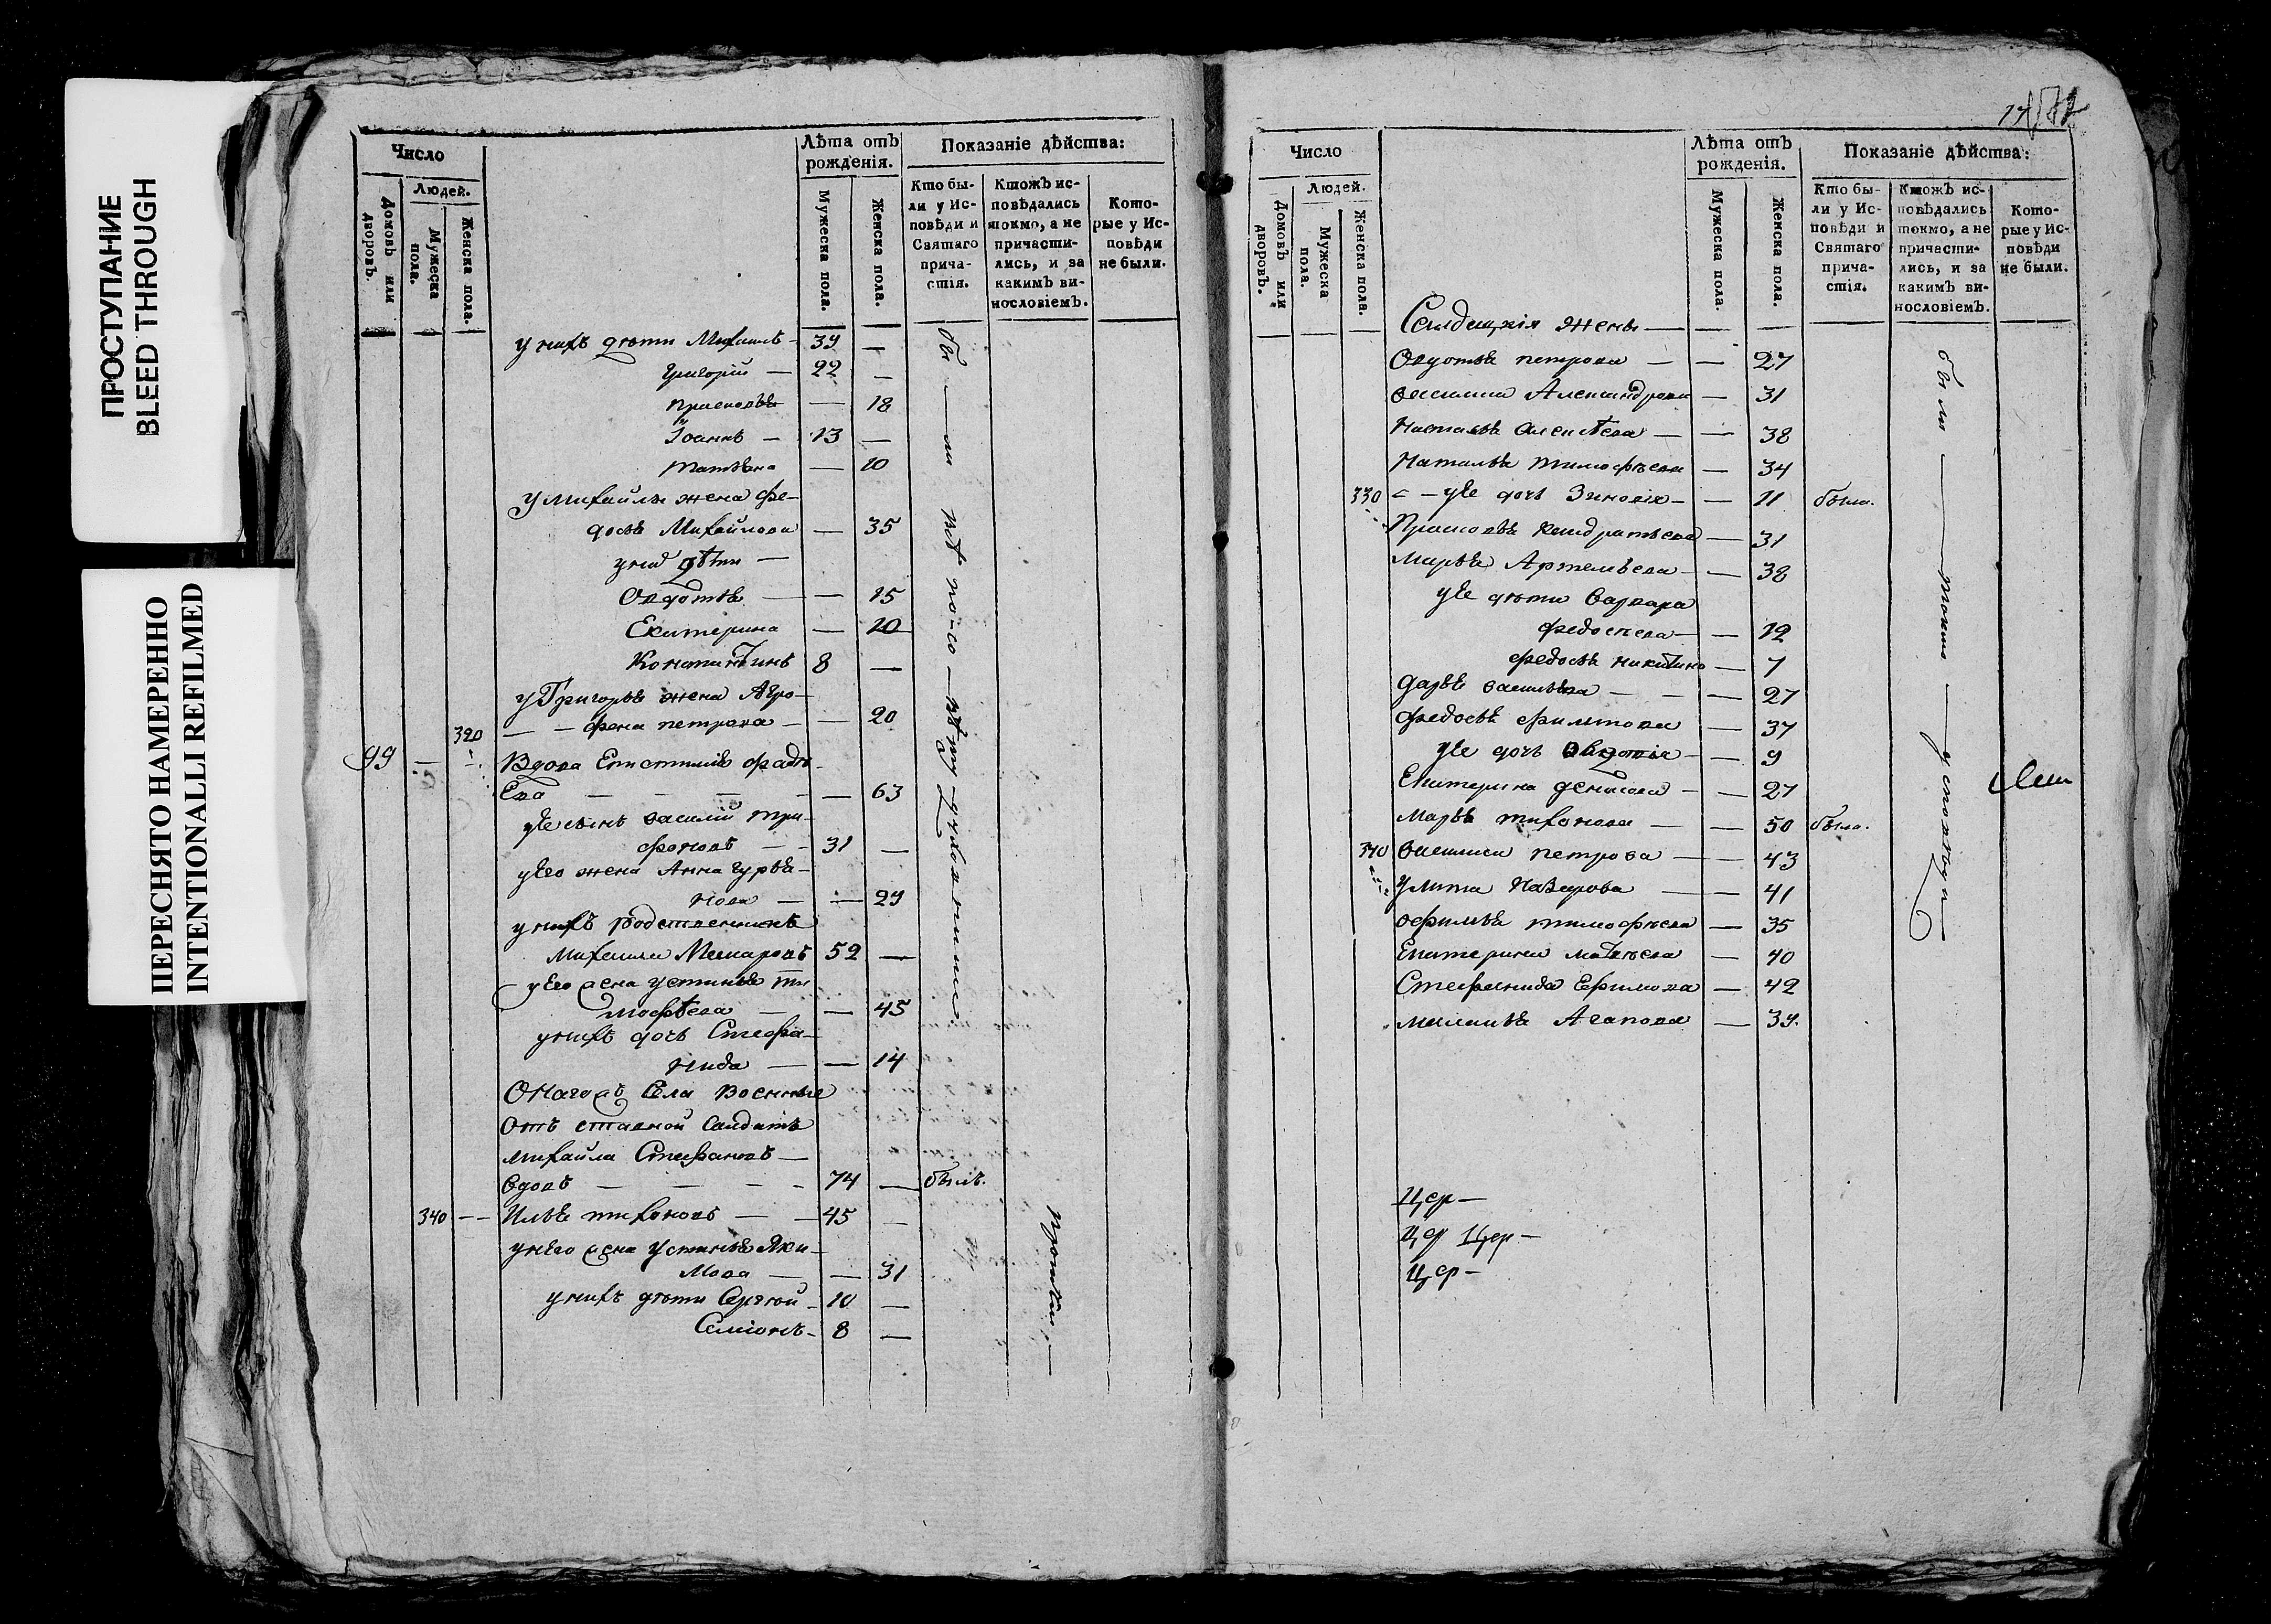 ПРОСТУПАНИЕ
BLEED THROUGH
ПЕРЕСНЯТО НАМЕРЕННО
INTENTIONALLI REFILMED
Число
Людей.
Домовъ или дворовъ.
Мужеска пола.
Женска пола.
Лѣта отъ рожденія.
Мужеска пола.
Женска пола.
Показаніе дѣйства:
Кто бы-
ли у Ис-
повѣди и
Святаго
прича-
стія.
Ктожъ ис-
повѣдались
токмо, а не
причасти-
лись, и за
какимъ ви-
нословіемъ.
Кото-
рые у Ис-
повѣди
не были.
у нихъ дѣти Михаилъ — 39 —
Григорій — 22 —
Прасковья — 18
Іоаннъ — 13 —
Татьяна — 10
У Михайлы жена Фе-
досья Михайлова — 35
у них дѣти —
Овдотья — 15
Екатерина — 10
Константинъ 8 —
У Григорья жена Агро-
320 — фена петрова — 20
99 — Вдова Епистимія фадѣ-
Ева — — — 63
у Ее сынъ василій три-
фоновъ — 31 —
у Его жена Анна гурья-
нова — 29
у нихъ родственникъ
Михаила 52 —
у Его жена устинья ти
мофѣева — 45
у нихъ дочь Стефа-
нида — 14
Онагожъ Села Военные
Отъ ставной Салдатъ
михайла Стефановъ —
вдовъ — — — 74 — былъ.
340 — Илья тихоновъ — 45 —
у нЕго жена Устинья Яки-
мова — 31
у нихъ дѣти Сергѣй — 10 —
Семіонъ — 8 —
Число
Людей.
Домовъ или дворовъ.
Мужеска пола.
Женска пола.
Лѣта отъ рожденія.
Мужеска пола.
Женска пола.
Показаніе дѣйства:
Кто бы-
ли у Ис-
повѣди и
Святаго
прича-
стія.
Ктожъ ис-
повѣдались
токмо, а не
причасти-
лись, и за
какимъ ви-
нословіемъ.
Кото-
рые у Ис-
повѣди
не были.
Салдацкія Жены —
Овдотья петрова — — 27
василиса Александрова — 31
Настасья алексѣева — — 38
Наталья тимофѣева — 34
330 — у Ее дочь Зиновія — — 11 была.
Прасковья кондратьева — 31
Марья Артемьева — — 38
у Ее дѣти Варвара
федосѣева — — 12
федосья никитина — 7
Дарья васильева — — 27
федосья филипова — 37
у Ее дочь Авдотія — — 9
Екатерина денисова — — 27
Марья тихонова — — 50 была.
340 василиса петрова — — 43
Улита Назарова — — 41
офимья тимофѣева — 35
Екатерина матвѣева — 40
Стефанида Ефимова — 42
маланья Агапова — 39.
были — токмо — у исповѣди —
Цер —
Цер —